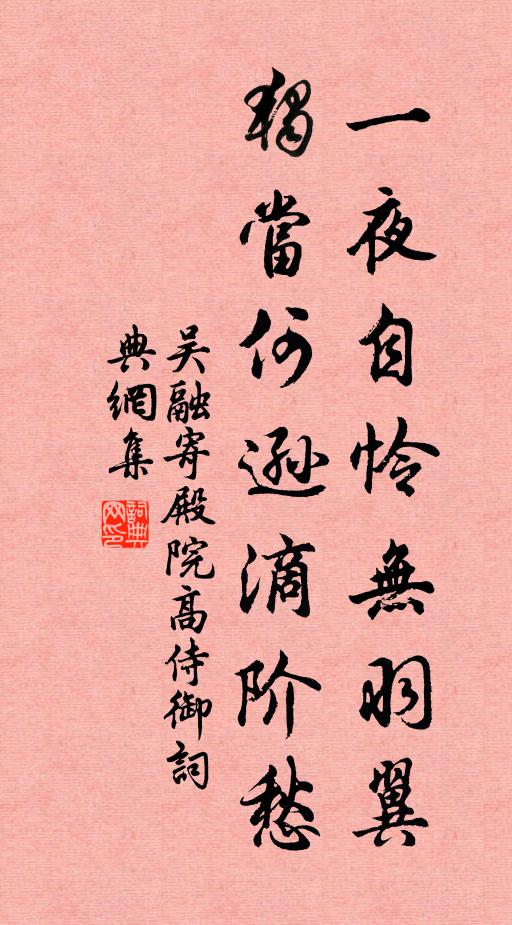 一夜自怜無羽翼
獨當何遜滴阶愁
吴融寄殿院高侍御詞
典網集
詞典網印